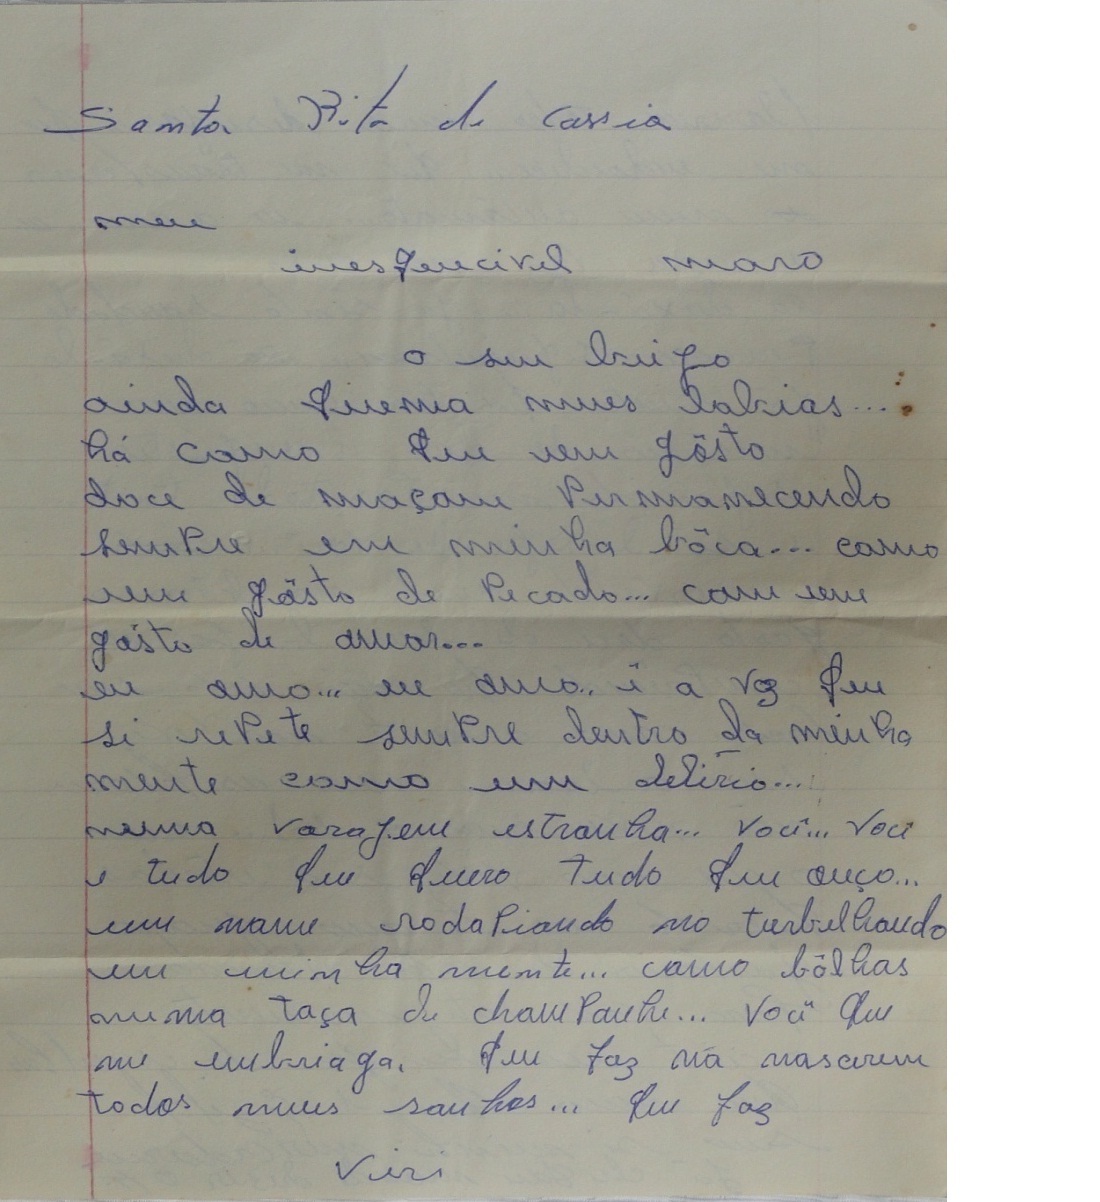 Santa Rita de Cassia
meu
inesquecivel maro
o seu beijo
ainda queima meus labias...
há como que um gôsto
doce de maçam permanecendo
sempre em minha bôca... como
um gôsto de pecado... com um
gôsto de amor...
eu amo... eu amo.. é a voz que
si repete sempre dentro da minha
mente como um delirio...
numa varagem estranha... você... você
e tudo que quero tudo que ouço...
um nome rodopiando no turbilhando
em minha mente... como bôlhas
numa taça de champanhe... você que
me embriaga. que faz
nascerem
todos meus sonhos... que faz
Viri